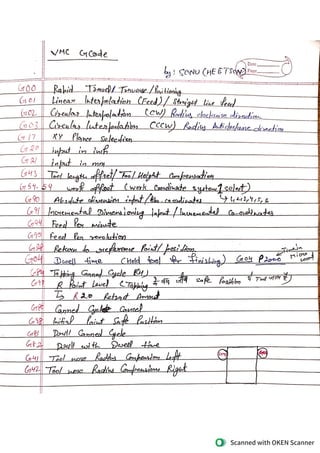 VMC GCode
Date
Page
by: SONU CHEETSON
G00 Rabid Travel/ Traverse/ Positioning
G01 Linear Interpolation (Feed)/ Straight line feed
G02 Circular Interpolation (CW) Radius clockwise direction
G03 Circular Interpolation (CCW) Radius Anticlockwise direction
G17 XY Plane Selection
G20 input in inch
G21 input in mm
G43 Tool length offset/ Tool Height Compensation
G54-59 work offset (work Coordinate system 1 select)
G90 Absolute dimension input/ Abs co.ordinates 1,2,3,4,5,6
G91 Incremental Dimensioning Input/ Incremental co-ordinates
G94 Feed Per minute
G95 Feed Per revolution
G28 Return to reference Point/ position
G04 Dwell time (hold tool for finishing) G04 P2000
G84 Tapping Canned Cycle RH)
G99 R Point Level (Tapping safe Position
R20 Retract Amount
G80 Canned Cycle Cancel
G98 Initial Point Safe Position
G81 Drill Canned Cycle
G82 Drill with Dwell time
G41 Tool nose Radius Compension Left
G42 Tool nose Radius Compension Right
Scanned with OKEN Scanner